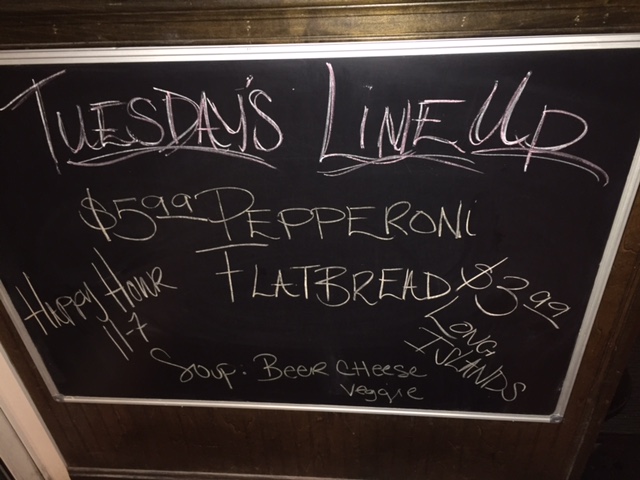 TUESDAY'S LINE UP
$5.99 PEPPERONI
FLATBREAD
Happy Hour
11-7
$3.99
LONG
ISLANDS
Soup: BEER CHEESE
Veggie